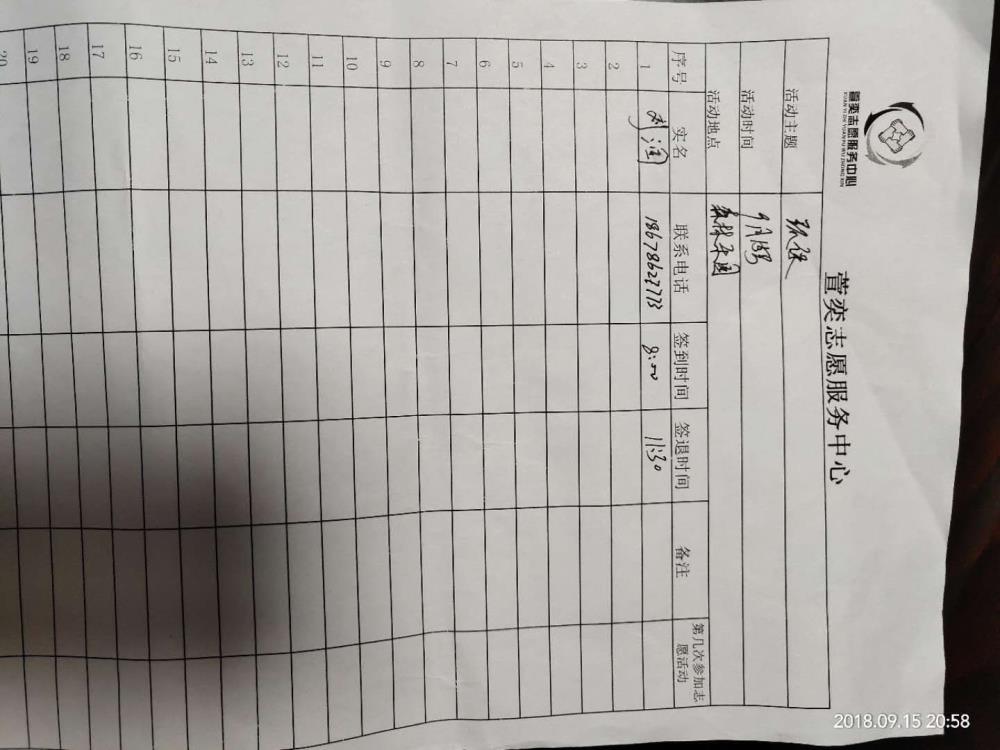 萱奕志愿服务中心
XUAN YI ZHI YUAN FU WU ZHONG XIN
萱奕志愿服务中心
活动主题 环保
活动时间 9月15号
活动地点 森林公园
序号 实名 联系电话 签到时间 签退时间 备注 第几次参加志愿活动
1 18678627773 8:00 11:30
2
3
4
5
6
7
8
9
10
11
12
13
14
15
16
17
18
19
20
2018.09.15 20:58